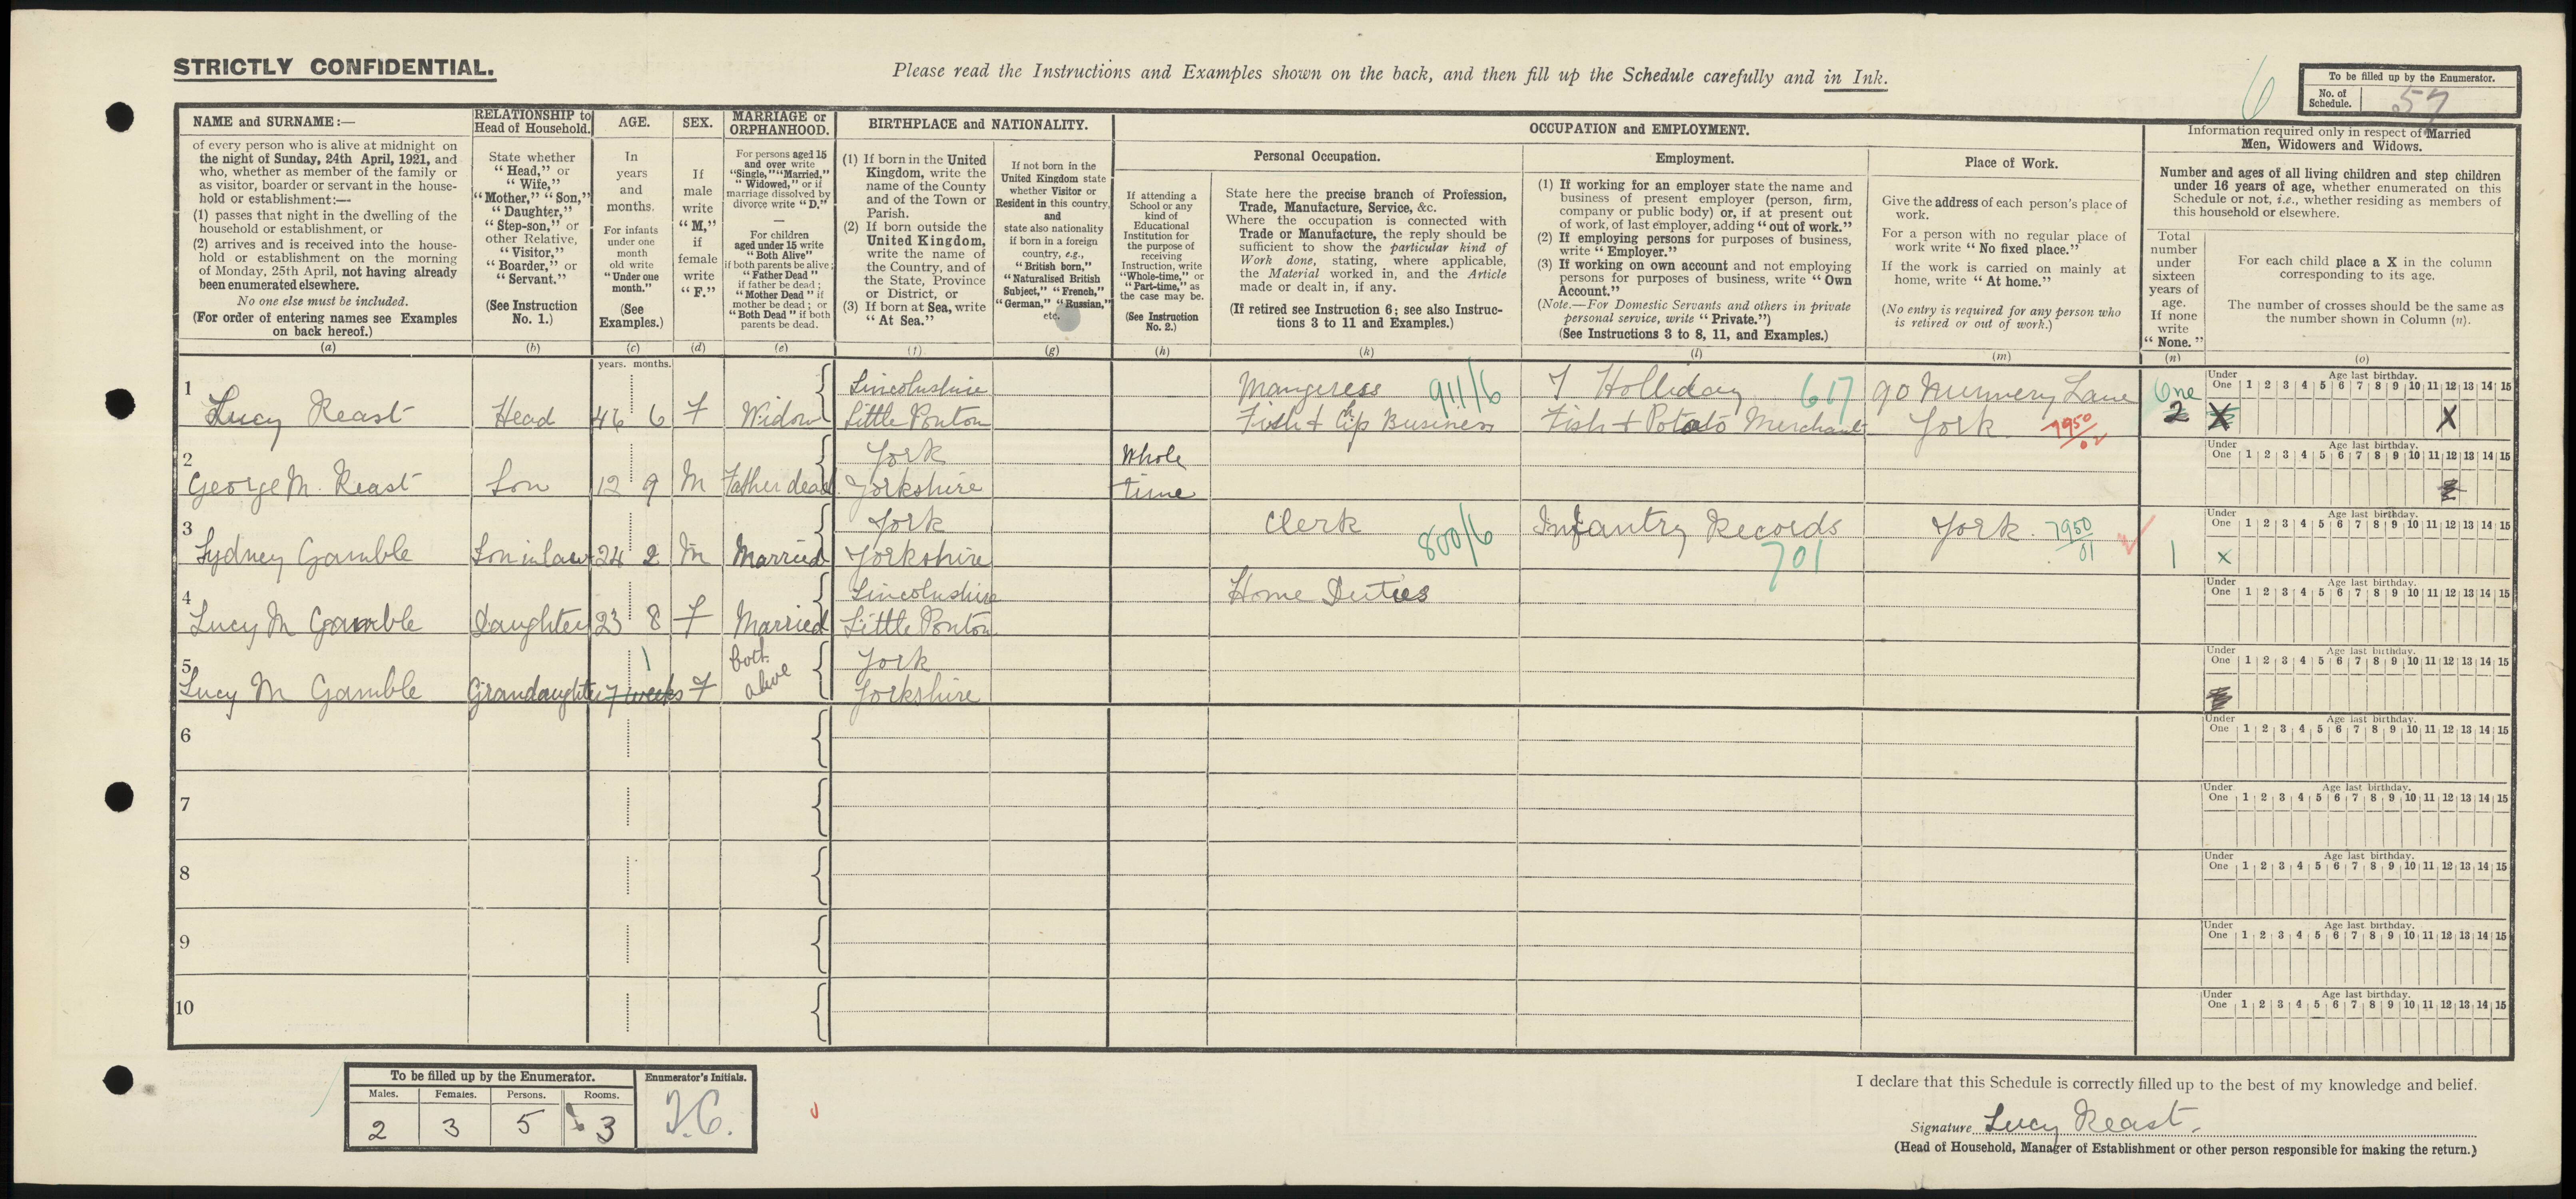 STRICTLY CONFIDENTIAL.
Please read the Instructions and Examples shown on the back, and then fill up the Schedule carefully and in Ink.
6
To be filled up by the Enumerator.
No. of Schedule. 57
NAME and SURNAME:—
of every person who is alive at midnight on
the night of Sunday, 24th April, 1921, and
who, whether as member of the family or
as visitor, boarder or servant in the house-
hold or establishment:—
(1) passes that night in the dwelling of the
household or establishment, or
(2) arrives and is received into the house-
hold or establishment on the morning
of Monday, 25th April, not having already
been enumerated elsewhere.
No one else must be included.
(For order of entering names see Examples
on back hereof.)
(a)
RELATIONSHIP to
Head of Household.
State whether
"Head," or
"Wife,"
"Mother," "Son,"
"Daughter,"
"Step-son," or
other Relative,
"Visitor,"
"Boarder," or
"Servant."
(See Instruction
No. 1.)
(b)
AGE.
In
years
and
months.
For infants
under one
month
old write
"Under one
month."
(See
Examples.)
(c)
SEX.
If
male
write
"M,"
if
female
write
"F."
(d)
MARRIAGE or
ORPHANHOOD.
For persons aged 15
and over write
"Single," "Married,"
"Widowed," or if
marriage dissolved by
divorce write "D."
—
For children
aged under 15 write
"Both Alive"
if both parents be alive;
"Father Dead"
if father be dead;
"Mother Dead" if
mother be dead; or
"Both Dead" if both
parents be dead.
(e)
BIRTHPLACE and NATIONALITY.
(1) If born in the United
Kingdom, write the
name of the County
and of the Town or
Parish.
(2) If born outside the
United Kingdom,
write the name of
the Country, and of
the State, Province
or District, or
(3) If born at Sea, write
"At Sea."
(f)
If not born in the
United Kingdom state
whether Visitor or
Resident in this country,
and
state also nationality
if born in a foreign
country, e.g.,
"British born,"
"Naturalised British
Subject," "French,"
"German," "Russian,"
etc.
(g)
OCCUPATION and EMPLOYMENT.
If attending a
School or any
kind of
Educational
Institution for
the purpose of
receiving
Instruction, write
"Whole-time," or
"Part-time," as
the case may be.
(See Instruction
No. 2.)
(h)
Personal Occupation.
State here the precise branch of Profession,
Trade, Manufacture, Service, &c.
Where the occupation is connected with
Trade or Manufacture, the reply should be
sufficient to show the particular kind of
Work done, stating, where applicable,
the Material worked in, and the Article
made or dealt in, if any.
(If retired see Instruction 6; see also Instruc-
tions 3 to 11 and Examples.)
(k)
Employment.
(1) If working for an employer state the name and
business of present employer (person, firm,
company or public body) or, if at present out
of work, of last employer, adding "out of work."
(2) If employing persons for purposes of business,
write "Employer."
(3) If working on own account and not employing
persons for purposes of business, write "Own
Account."
(Note.—For Domestic Servants and others in private
personal service, write "Private.")
(See Instructions 3 to 8, 11, and Examples.)
(l)
Place of Work.
Give the address of each person's place of
work.
For a person with no regular place of
work write "No fixed place."
If the work is carried on mainly at
home, write "At home."
(No entry is required for any person who
is retired or out of work.)
(m)
Information required only in respect of Married
Men, Widowers and Widows.
Number and ages of all living children and step children
under 16 years of age, whether enumerated on this
Schedule or not, i.e., whether residing as members of
this household or elsewhere.
Total
number
under
sixteen
years of
age.
If none
write
"None."
(n)
For each child place a X in the column
corresponding to its age.
The number of crosses should be the same as
the number shown in Column (n).
(o)
years. months.
1 Lincolnshire Mangeress 911/6 J Holliday 617 90 Nunnery Lane One
Under One Age last birthday. 1 2 3 4 5 6 7 8 9 10 11 12 13 14 15
Lucy Reast Head 46 6 F Widow Little Ponton Fish + Chip Business Fish + Potato Merchant York 7950/02 2 X X
2 York Whole
Under One Age last birthday. 1 2 3 4 5 6 7 8 9 10 11 12 13 14 15
George M. Reast Son 12 9 M Father dead Yorkshire time
3 York Clerk 800/6 Infantry Records York. 7950/01
Under One Age last birthday. 1 2 3 4 5 6 7 8 9 10 11 12 13 14 15
Sydney Gamble Son in law 24 2 M Married Yorkshire 701 1 X
4 Lincolnshire Home Duties
Under One Age last birthday. 1 2 3 4 5 6 7 8 9 10 11 12 13 14 15
Lucy M Gamble Daughter 23 8 F Married Little Ponton
5 1 both York
Under One Age last birthday. 1 2 3 4 5 6 7 8 9 10 11 12 13 14 15
Lucy M Gamble Grandaughter 7 weeks F alive Yorkshire
6
Under One Age last birthday. 1 2 3 4 5 6 7 8 9 10 11 12 13 14 15
7
Under One Age last birthday. 1 2 3 4 5 6 7 8 9 10 11 12 13 14 15
8
Under One Age last birthday. 1 2 3 4 5 6 7 8 9 10 11 12 13 14 15
9
Under One Age last birthday. 1 2 3 4 5 6 7 8 9 10 11 12 13 14 15
10
Under One Age last birthday. 1 2 3 4 5 6 7 8 9 10 11 12 13 14 15
To be filled up by the Enumerator.
Males. Females. Persons. Rooms.
2 3 5 3
Enumerator's Initials.
I declare that this Schedule is correctly filled up to the best of my knowledge and belief.
Signature Lucy Reast.
(Head of Household, Manager of Establishment or other person responsible for making the return.)